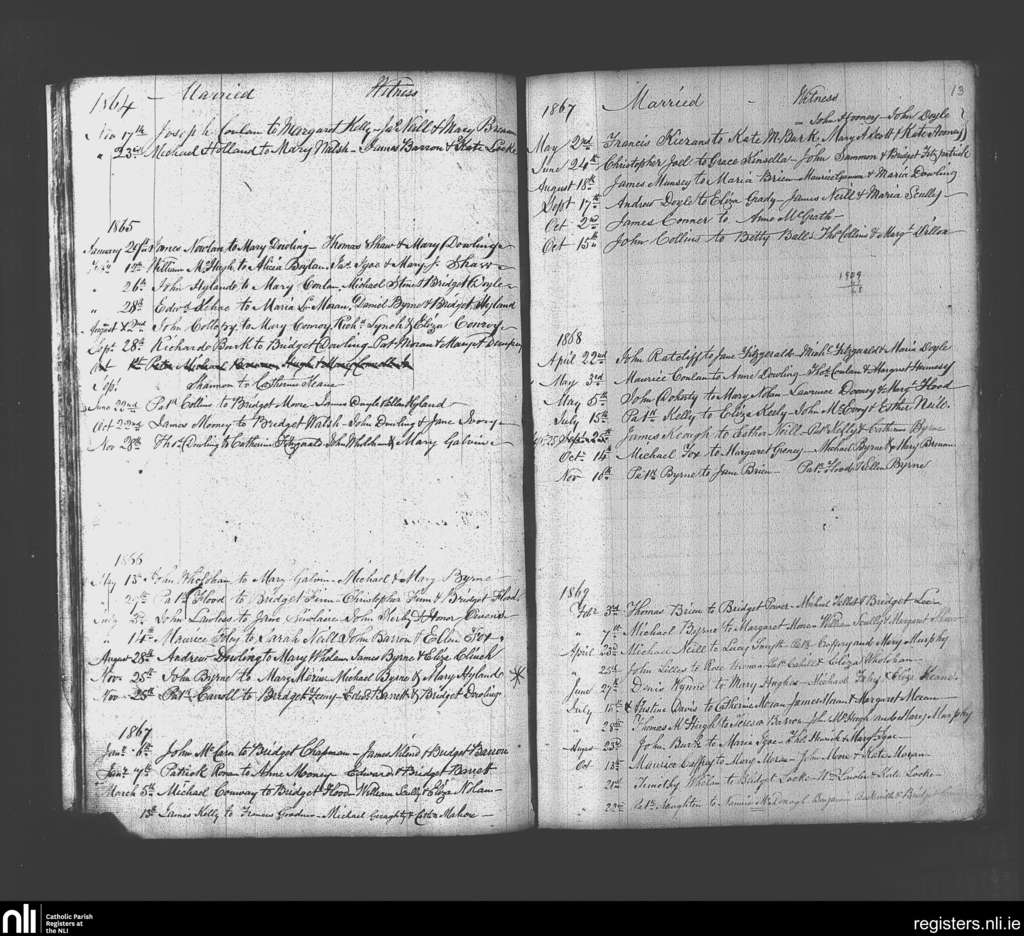 1864 - Married Witness
Nov 17th Joseph Conlan to Margaret Kelly - Jas Neill & Mary Brennan
" 23rd Michael Holland to Mary Walsh - James Barron & Kate Locke
1865
January 29th James Nowlan to Mary Dowling - Thomas Shaw & Mary Dowling
19th William McHugh to Alicia Boylan Jas Tyae & Mary J. Shaw
" 26th John Hylands to Mary Conlan Michael & Bridget Doyle
" 28th Edwd to Maria Moran Daniel Byrne & Bridget Hyland
August 22nd John to Mary Conroy Richd Lynch & Eliza Conroy
Sept 28th Richard Burk to Bridget Dowling Pat Moran & Margt Dempsey
Oct 1st Peter Michael Hugh & Mary
Sept Shannon to Catherine Keane
June 22nd Patk Collins to Bridget Moore James Doyle & Ellen Hyland
Oct 22nd James Money to Bridget Walsh - John Dowling & Jane Ivory
Nov 28th Thos Dowling to Catherine Fitzgerald John Whelan & Mary Galvin
1866
May 13th John Wholohan to Mary Galvin - Michael & Mary Byrne
" 27th Patk Flood to Bridget Finn - Christopher Finn & Bridget Flood
July 5th John Lawless to Jane Sinclaire John & Honor
" 14th Maurice Foley to Sarah Neill John Barron & Ellen Fox
August 28th Andrew Dowling to Mary Whelan James Byrne & Eliza Clinch
Nov 25th John Byrne to Mary Michael Byrne & Mary Hyland
Nov 25th Patk Carroll to Bridget Feeny - Edwd Barrett & Bridget Dowling
1867
Jany 6th John McCarn to Bridget Chapman - James & Bridget Barron
Jany 7th Patrick Ronan to Anne Mooney Edward & Bridget Barrett
March 5th Michael Conway to Bridget Flood William Scully & Eliza Nolan
1st James Kelly to Frances Goodwin - Michael Geraghty & Cathn Mahon
13
1867 Married - Witness
- John Hooney - John Doyle
May 2nd Francis Kierans to Kate McBurk Mary Abott & Kate Hooney
June 24th Christopher Joel to Grace Kinsella - John Sammon & Bridget Fitzpatrick
August 18th James Munsey to Maria Brien - Maurice & Maria Dowling
Sept 17th Andrew Doyle to Eliza Grady - James Neill & Maria Scully
Oct 2nd James Conner to Anne McGrath -
Oct 15th John Collins to Betty Balls Thos Collins & Margt Dillon
1868
April 22nd John Ratcliff to Jane Fitzgerald - Michl Fitzgerald & Maria Doyle
May 3rd Maurice Conlan to Anne Dowling - Thos Conlan & Margaret Hennessy
May 5th John Doherty to Mary Nolan Lawrence Dooney & Mary Flood
July 15th Patk Kelly to Eliza Keely - John McEvoy & Esther Neill
Sept 25th James Keogh to Esther Neill Patk Kelly & Catherine Byrne
Oct 14th Michael Fox to Margaret Greney - Michael Byrne & Mary Brennan
Nov 10th Patk Byrne to Jane Brien - Patk Flood & Ellen Byrne
1869
Feb 3rd Thomas Brien to Bridget Power - Michael & Bridget Lee
" 7th Michael Byrne to Margaret Moran William Scully & Margaret Shaw
April 23rd Michael Neill to Lucy Smyth Patk Caffery and Mary Murphy
" 25th John to Rose Patk Cahill & Eliza Wholohan
June 27th Denis Kynne to Mary Hughes - Michael Foley & Eliza Keane
July 15th Justine Davis to Catherine Moran James Horan & Margaret Moran
" 28th Thomas McHugh to Teresa Barron - John McHugh and Mary Murphy
Augt 23rd John Burk to Maria Tyae - Thos & Mary Tyae
Oct 13th Maurice Caffrey to Mary Moran - John Moore & Kate Moran
" 21st Timothy Whelan to Bridget Locke - Wm Lawler & Kate Locke
" 22nd Patk Naughton to McDonagh Benjamin & Bridget